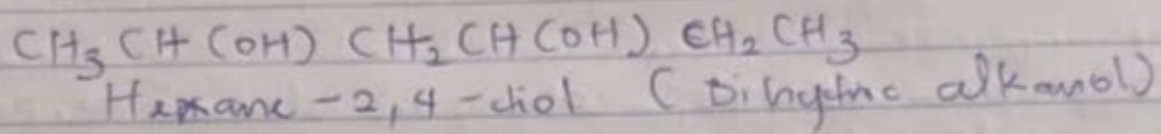 CH₃CH(OH) CH₂CH(OH) CH₂CH₃
Hexane-2,4-diol (Dihydric alkanol)